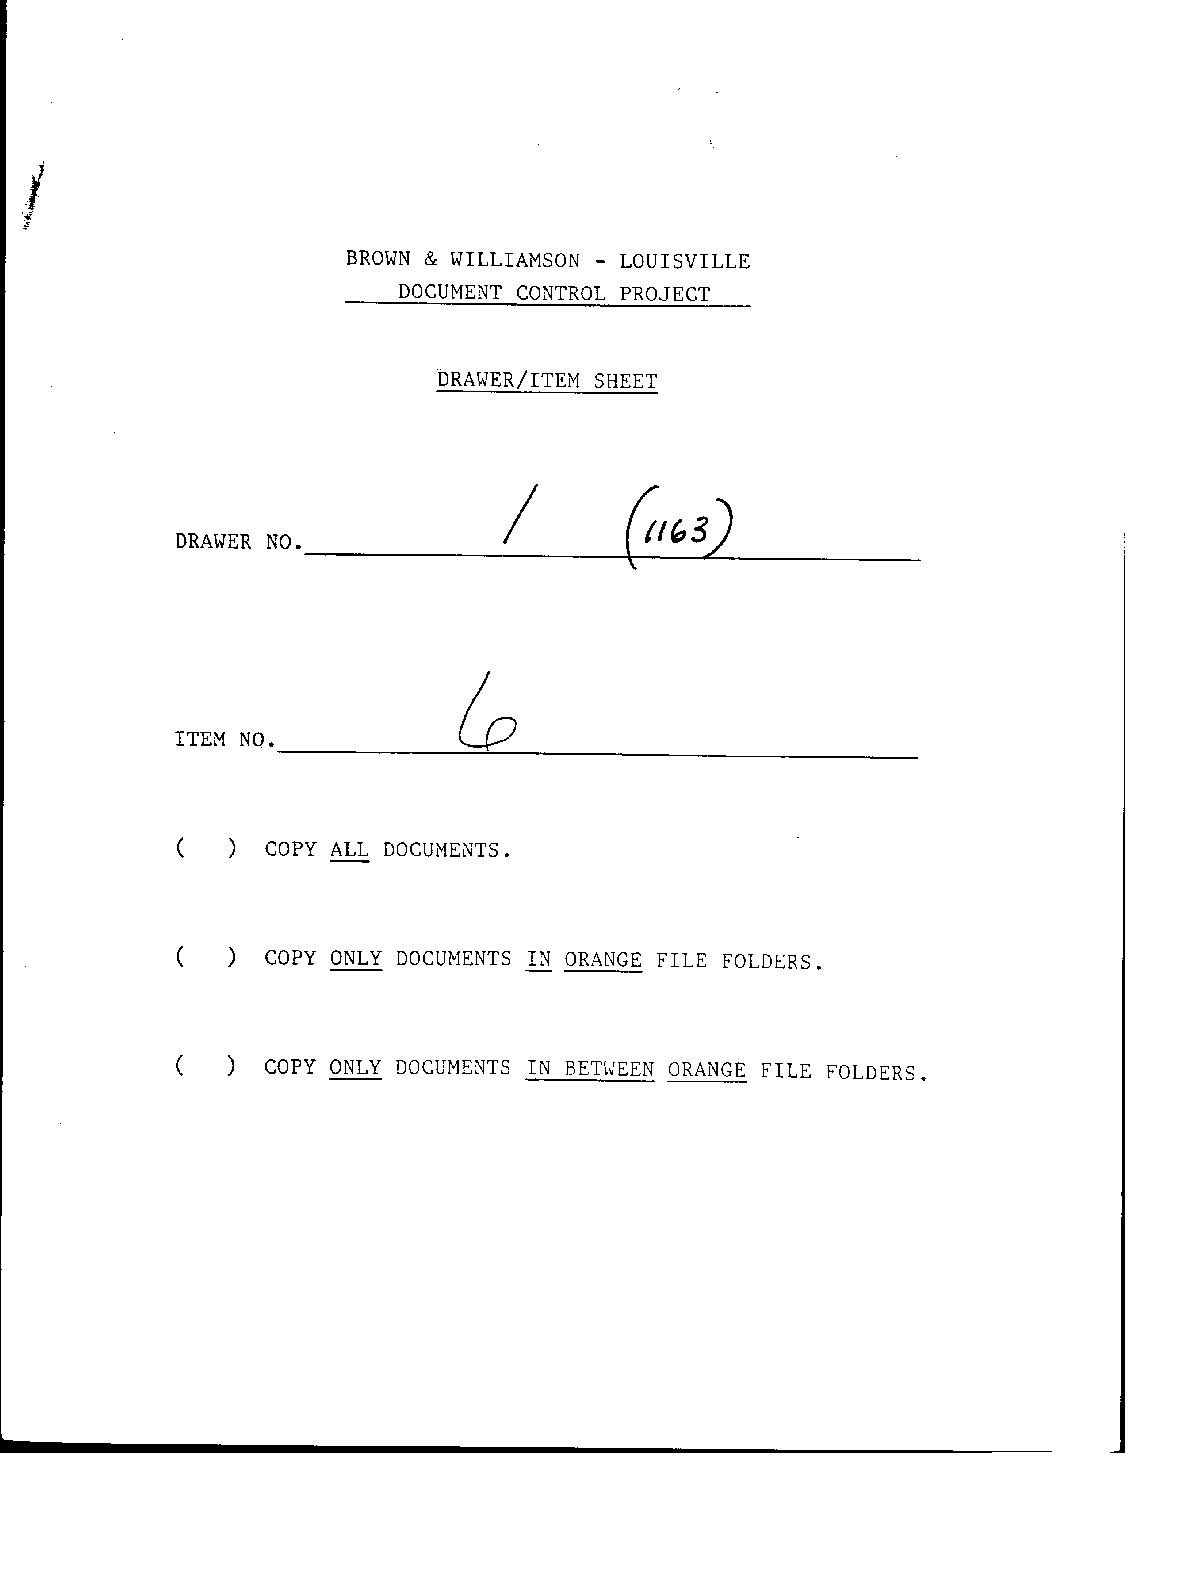 BROWN & WILLIAMSON - LOUISVILLE
DOCUMENT CONTROL PROJECT
DRAWER/ITEM SHEET
DRAWER NO. 1 (1163)
ITEM NO. 6
( ) COPY ALL DOCUMENTS.
( ) COPY ONLY DOCUMENTS IN ORANGE FILE FOLDERS.
( ) COPY ONLY DOCUMENTS IN BETWEEN ORANGE FILE FOLDERS.